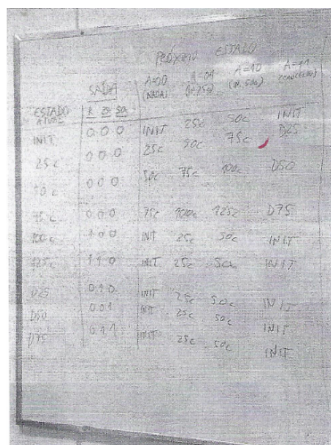 PRÓXIMO ESTADO
SAÍDA A=00 A=01 A=10 A=11
ESTADO ATUAL (NADA)
INIT 000 INIT 25c 50c INIT
25c 000 25c 50c 75c D25
50c 000 50c 75c 100c D50
75c 000 75c 100c 125c D75
100c 100 INIT 25c 50c INIT
125c 110 INIT 25c 50c INIT
D25 010 INIT 25c 50c INIT
D50 001 INIT 25c 50c INIT
D75 011 INIT 25c 50c INIT